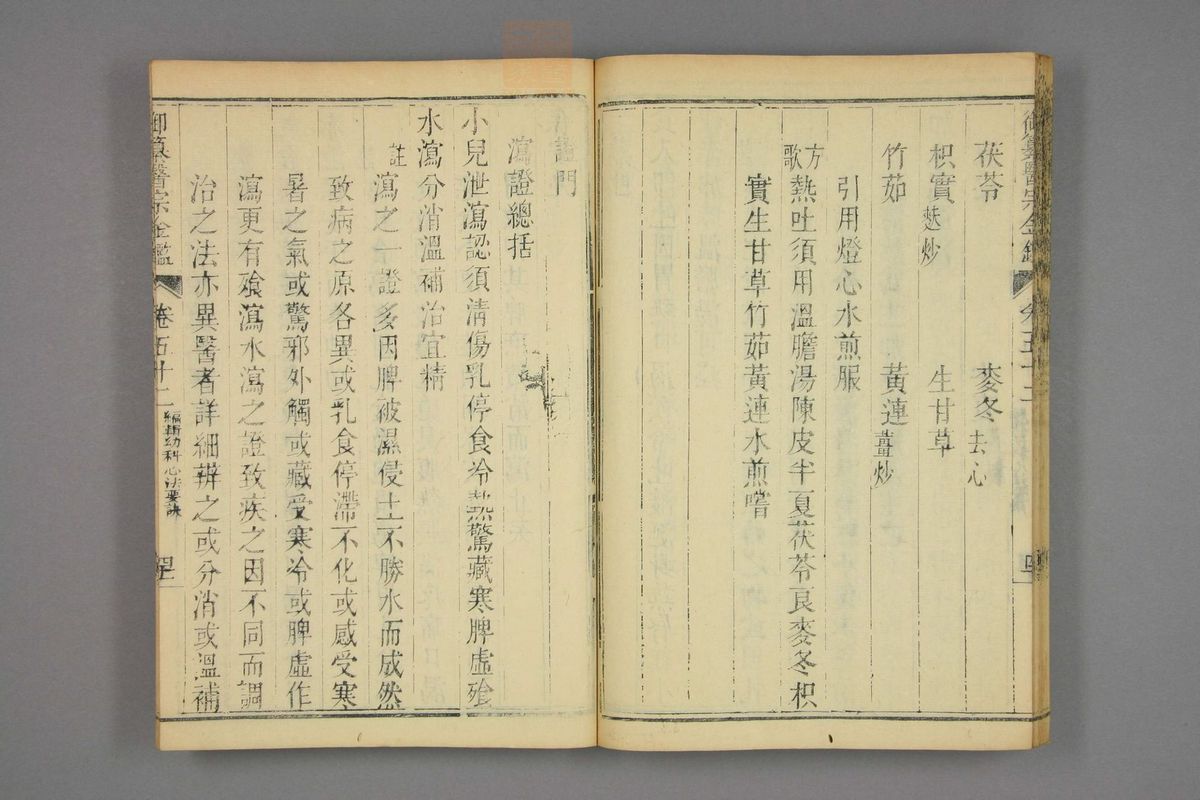 御纂醫宗金鑑 卷五十二 四
茯苓 麥冬去心
枳實麩炒 生甘草
竹茹 黃連薑炒
引用燈心水煎服
方歌 熱吐須用溫膽湯陳皮半夏茯苓良麥冬枳
實生甘草竹茹黃連水煎嘗
門
瀉證總括
小兒泄瀉認須清傷乳停食冷熱驚藏寒脾虛飱
水瀉分消溫補治宜精
註 瀉之一證多因脾被濕侵土不勝水而成然
致病之原各異或乳食停滯不化或感受寒
暑之氣或驚邪外觸或藏受寒冷或脾虛作
瀉更有飱瀉水瀉之證致疾之因不同而調
治之法亦異醫者詳細辨之或分消或溫補
御纂醫宗金鑑 卷五十二 編輯幼科心法要訣 四